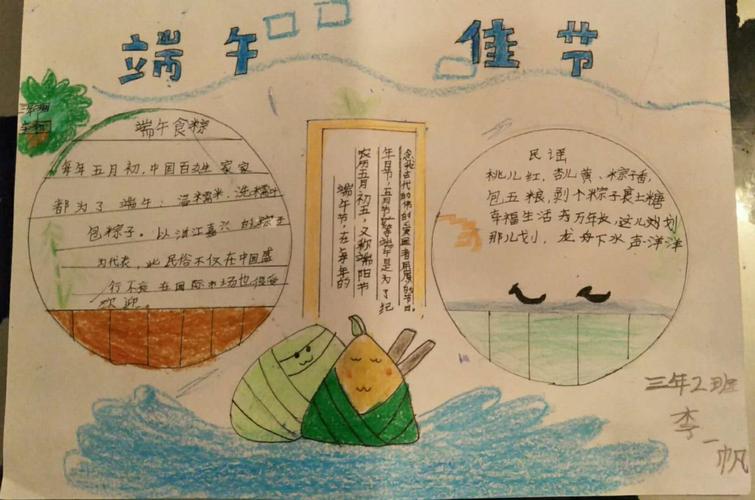 端午 佳节
三年
端午食粽
每年五月初,中国百姓家家
都为了端午:浸糯米、洗糯叶
包粽子。以浙江嘉兴的粽子
为代表,此民俗不仅在中国盛
行不衰 在国际市场也很受
欢迎。
端午节,在每年的
农历五月初五,又称端阳节
年日节,五月节等端午是为了纪
念我古代的伟的爱国者屈原的节日。
民谣
桃儿红,杏儿黄、粽子香,
包五粮,剥个粽子裹上糖
幸福生活 万年长,这儿划划
那儿划,龙舟下水 声洋洋
三年2班
李一帆